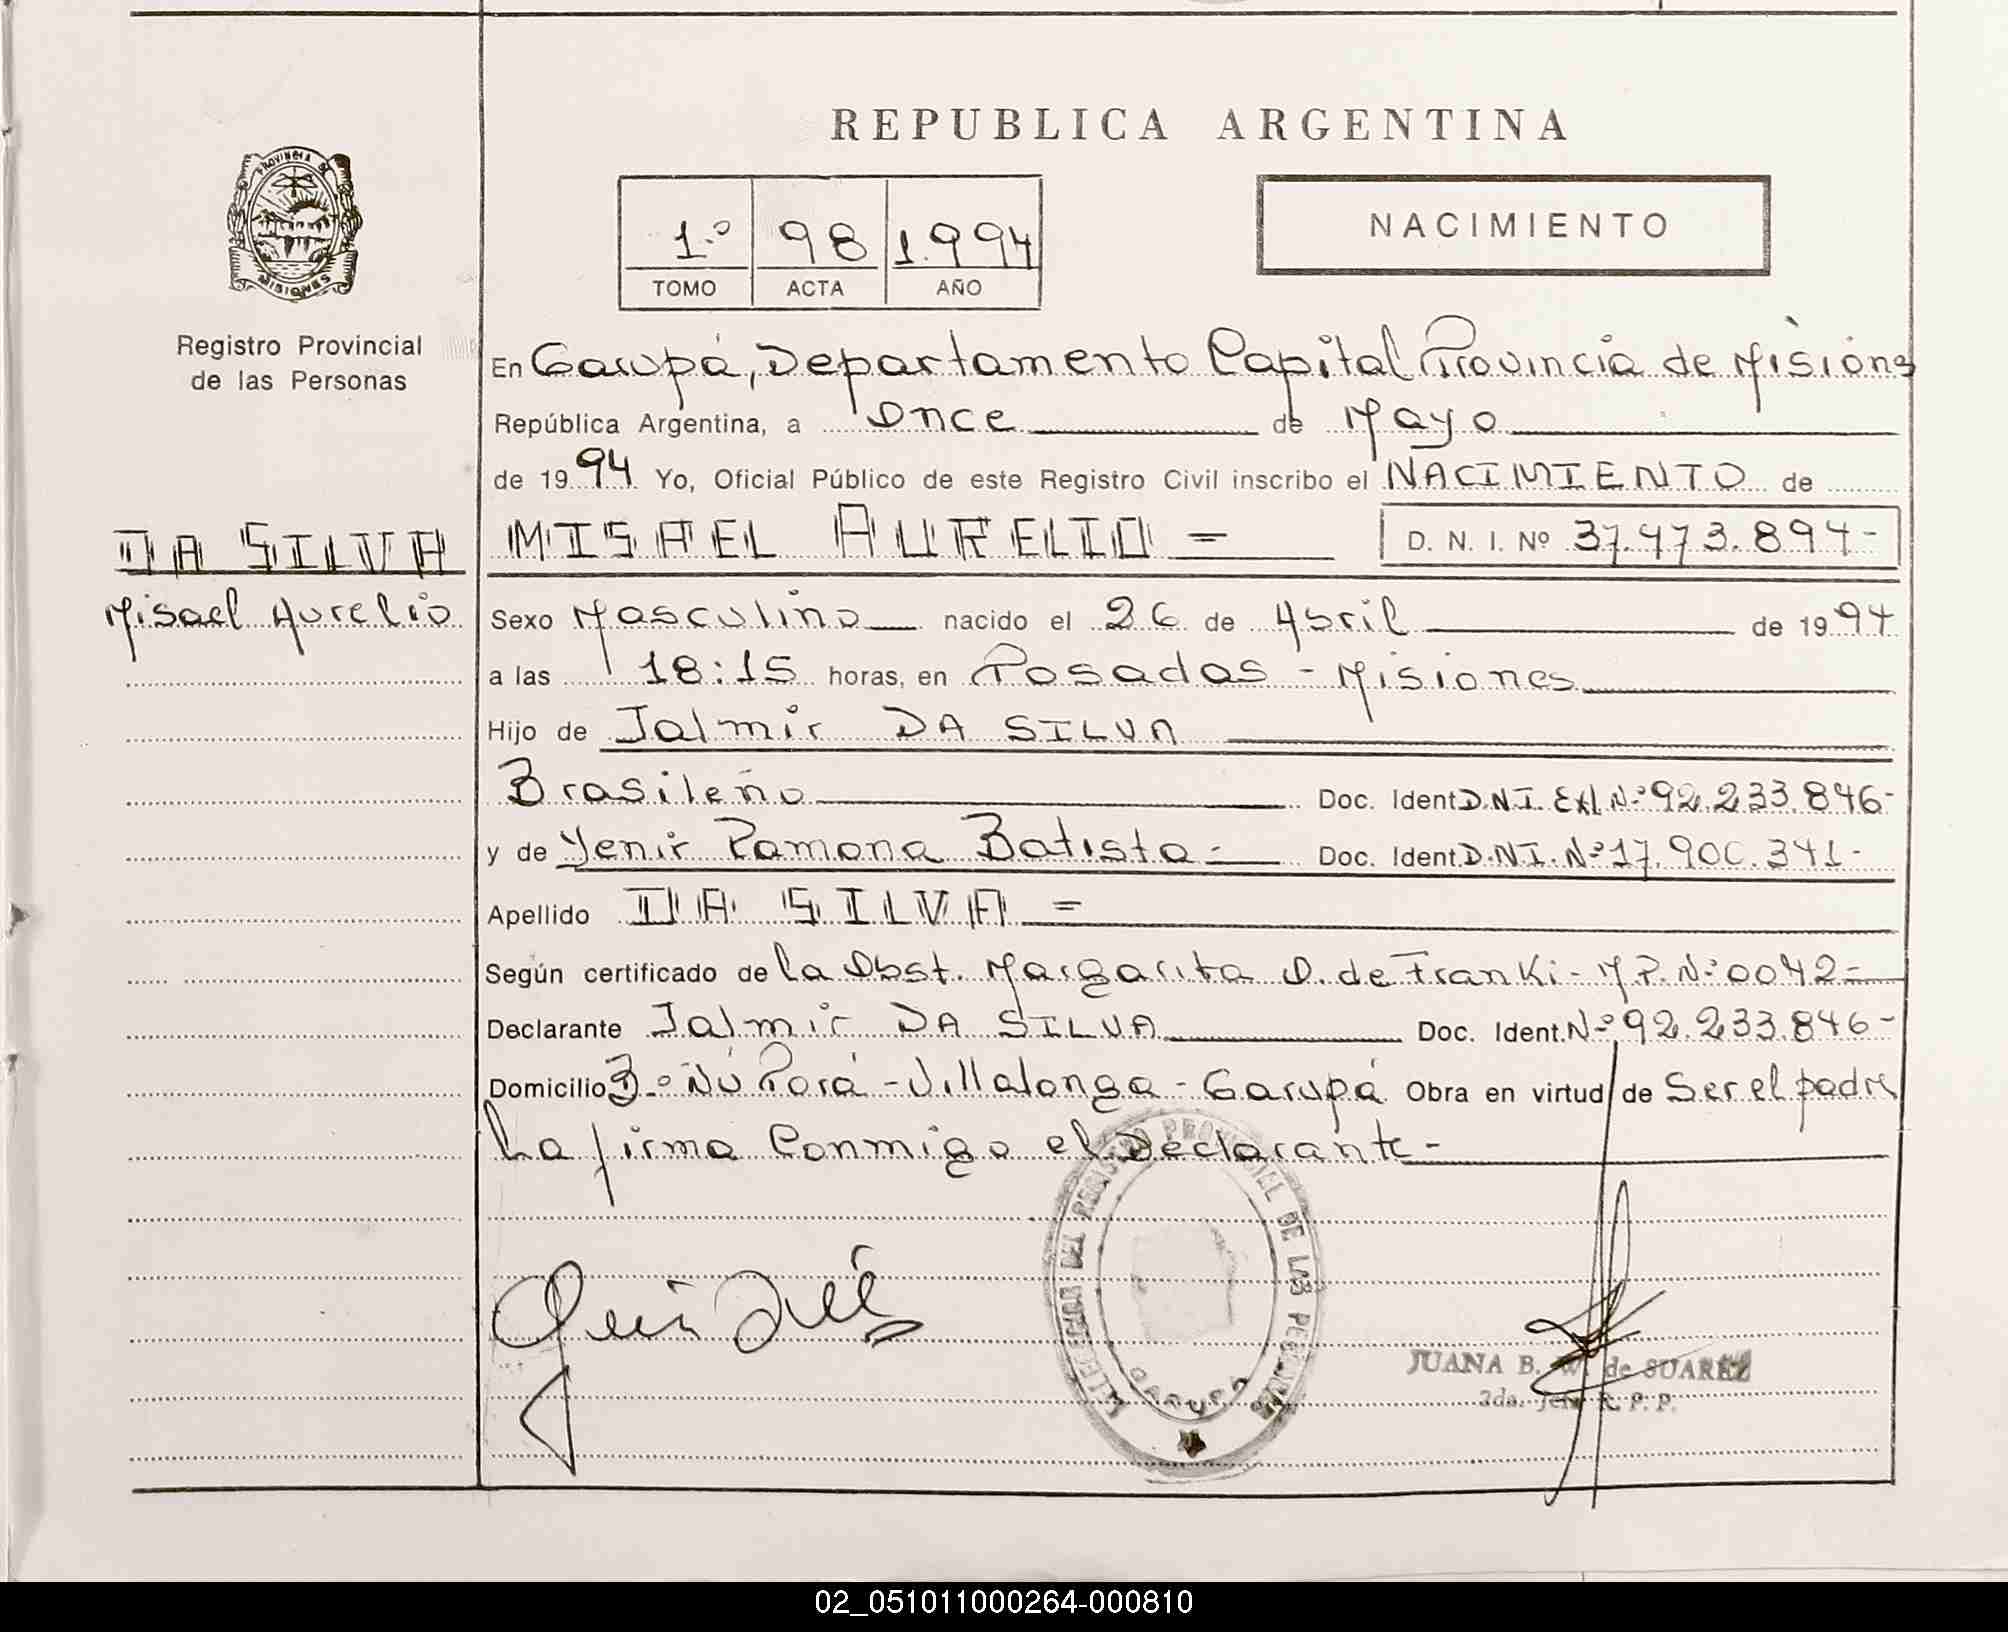 REPUBLICA ARGENTINA
PROVINCIA DE
MISIONES
Registro Provincial
de las Personas
1.º 98 1.994
TOMO ACTA AÑO
NACIMIENTO
En Garupá, Departamento Capital Provincia de Misiones
República Argentina, a once de Mayo
de 1994 Yo, Oficial Público de este Registro Civil inscribo el NACIMIENTO de
DA SILVA
Misael Aurelio
MISAEL AURELIO = D. N. I. Nº 37.473.894-
Sexo Masculino nacido el 26 de Abril de 1994
a las 18:15 horas, en Posadas - Misiones
Hijo de Jalmir DA SILVA
Brasileño Doc. Ident D.N.I. Ext. Nº 92.233.846-
y de Yenir Ramona Batista - Doc. Ident. D.N.I. Nº 17.900.341-
Apellido DA SILVA =
Según certificado de la Obst. Margarita O. de Franki - M.P. Nº 0042-
Declarante Jalmir DA SILVA Doc. Ident. Nº 92.233.846-
Domicilio Bº Ñú Porá - Villalonga - Garupá Obra en virtud de Ser el padre
La firma Conmigo el Declarante -
DELEGACION DEL REGISTRO PROVINCIAL DE LAS PERSONAS
GARUPA
JUANA B. W. de SUAREZ
2da. Jefe R. P. P.
02_051011000264-000810